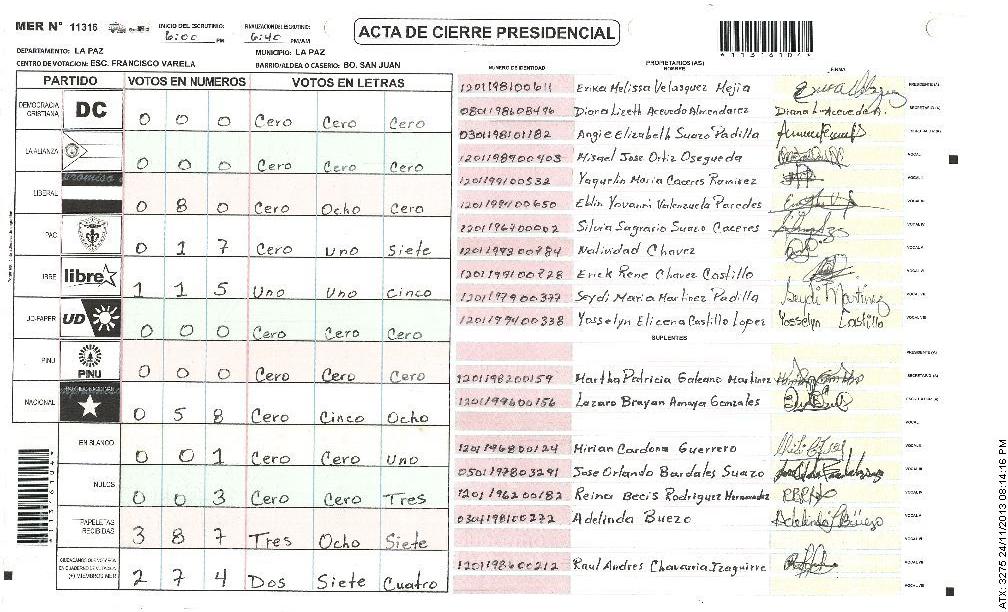 MER N° 11316
INICIO DEL ESCRUTINIO: 6:00 PM
FINALIZACION DEL ESCRUTINIO: 6:40 PM/AM
ACTA DE CIERRE PRESIDENCIAL
DEPARTAMENTO: LA PAZ
MUNICIPIO: LA PAZ
CENTRO DE VOTACION: ESC. FRANCISCO VARELA
BARRIO/ALDEA O CASERIO: BO. SAN JUAN
PARTIDO VOTOS EN NUMEROS VOTOS EN LETRAS
DEMOCRACIA CRISTIANA DC 0 0 0 Cero Cero Cero
LA ALIANZA 0 0 0 Cero Cero Cero
LIBERAL 0 8 0 Cero Ocho Cero
PAC 0 1 7 Cero Uno Siete
libre 1 1 5 Uno Uno Cinco
UD-FAPER UD 0 0 0 Cero Cero Cero
PINU PINU 0 0 0 Cero Cero Cero
NACIONAL 0 5 8 Cero Cinco Ocho
EN BLANCO 0 0 1 Cero Cero Uno
NULOS 0 0 3 Cero Cero Tres
PAPELETAS RECIBIDAS 3 8 7 Tres Ocho Siete
(+) MIEMBROS MER 2 7 4 Dos Siete Cuatro
NUMERO DE IDENTIDAD PROPIETARIOS (AS) NOMBRE FIRMA
1201198100611 Erika Melissa Velasquez Mejia PRESIDENTE (A)
0801198608496 Diana Lizeth Acevedo Almendarez Diana L. Acevedo A. SECRETARIO (A)
0301198101182 Angie Elizabeth Suazo Padilla
1201198900403 Misael Jose Ortiz Osegueda VOCAL I
1201199100532 Yaquelin Maria Caceres Ramirez VOCAL II
1201199400650 Eblin Yovanni Valenzuela Paredes
1201196700002 Silvia Sagrario Suazo Caceres
1201199300784 Natividad Chavez VOCAL V
1201199100728 Erick Rene Chavez Castillo
1201197900377 Seydi Maria Martinez Padilla Seydi Martínez
1201199400338 Yosselyn Elicena Castillo Lopez Yosselyn Castillo VOCAL VIII
SUPLENTES
PRESIDENTE (A)
1201198200159 Martha Patricia Galeano Martinez SECRETARIO (A)
1201199600156 Lazaro Brayan Amaya Gonzales
VOCAL I
1201196800124 Mirian Cardona Guerrero VOCAL II
0501197803291 Jose Orlando Bardales Suazo VOCAL III
1201196200182 Reina Becis Rodriguez Hernandez VOCAL IV
0301198100272 Adelinda Buezo VOCAL V
1201198600212 Raul Andres Chavarria Izaguirre VOCAL VII
VOCAL VIII
ATX: 3275 24/11/2013 08:14:16 PM